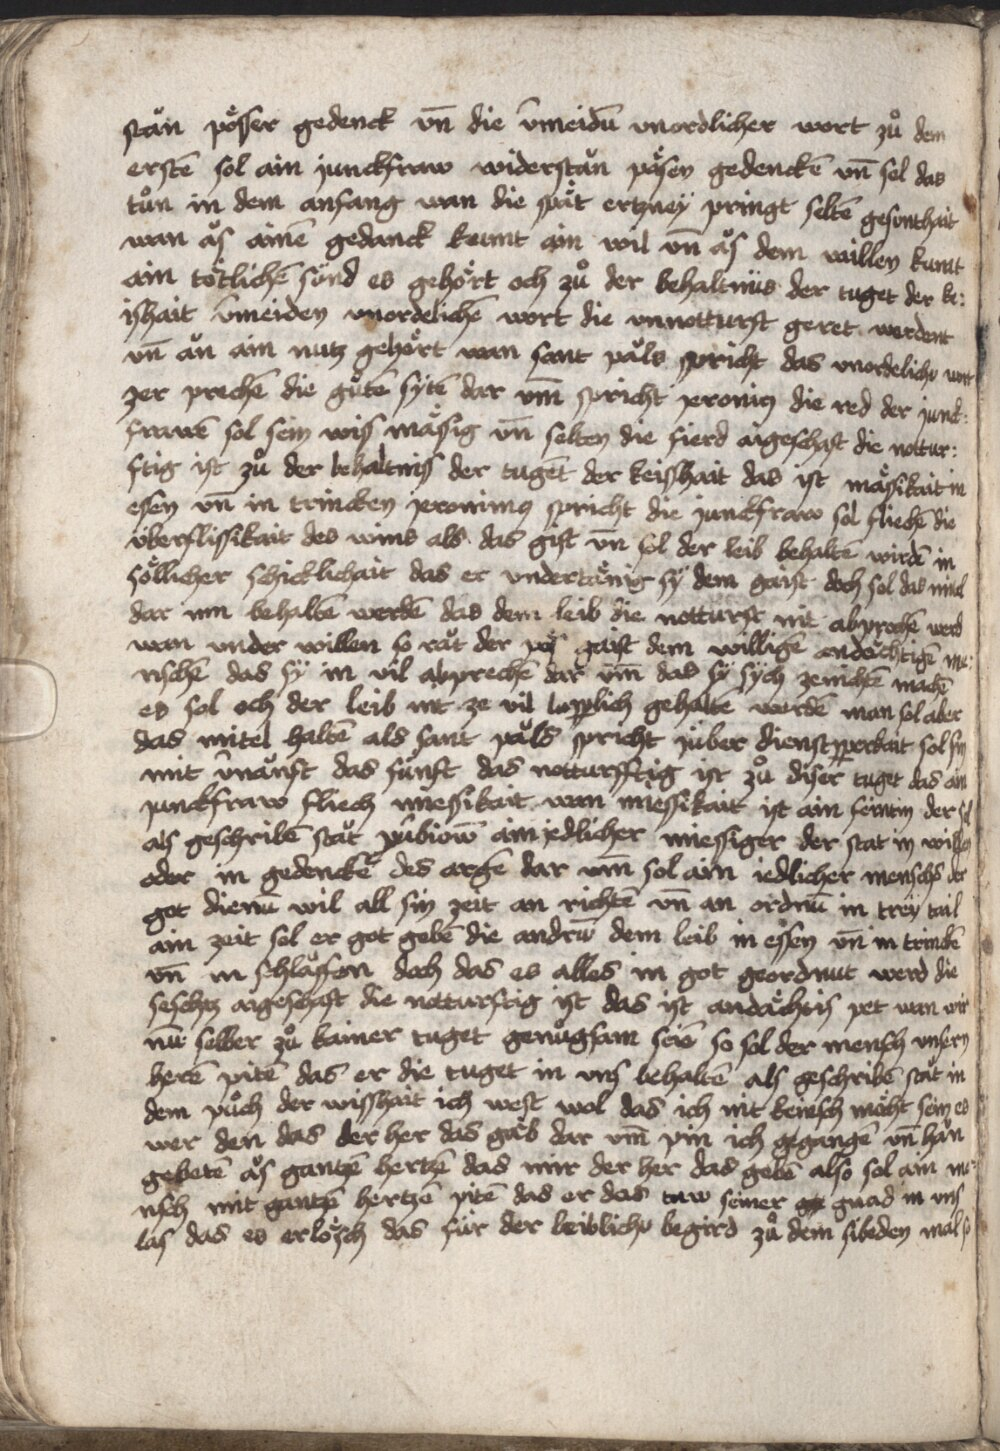 staͧn poͤsser gedenck vn̄ die v̄meidū vnordlicher wort zuͦ dem
erstē sol ain junckfraw widerstaͧn paͤsen gedenckē vn̄ sol das
tuͦn in dem anfang wan die spaͤt ertzney pringt seltē gesonthait
wan aͧs ainē gedanck kumt ain wil vn̄ aͧs dem willen kumt
ain toͤtlichē sünd es gehoͤrt och zuͦ der behaltnüs der tuget der ke:
ishait v̄meiden vnordelichē wort die vnnotturft geret werdent
vn̄ aͧn ain nutz gehoͤrt wan sant paͧls spricht das vnordelich wort
zer prechē die guͦtē sytē dar vm̄ spricht jeronimꝰ die red der junck:
frawē sol sein wis maͤssig vn̄ selten die fierd aigeschaft die nottur:
ftig ist zuͦ der behaltniss der tugēt der keisshait das ist maͤssikait in
essen vn̄ in trincken jeronimꝰ spricht die junckfraw sol fliechē die
überflissikait des wins als das gift vn̄ sol der leib behaltē wirdē in
soͤllicher schicklichait das er vndertaͤnig sÿ dem gaist doch sol das mittel
dar inn behaltē werdē das dem leib die notturft nit abprochē werd
wan vnder willen so raͧt der poͤs gaist dem willigē andaͤchtigē me:
nschē das sÿ im vil abprechē dar vm̄ das sÿ sych zenichtē machē
es sol och der leib nit ze vil lipplich gehaltē werdē man sol aber
das mitel haltē als sant paͧls spricht jüber dienstperkait sol sin
mit v̄naͧnft das fünft das notturfftig ist zuͦ diser tuget das ain
junckfraw fliech miessikait wan miessikait ist ain feintin der sel
als geschribē staͧt ain jedlicher miessiger der stat in willen
oder in gedenckē des argē dar vm̄ sol ain iedlicher mensch der
got dienū wil all sin zeit an richtē vn̄ an ordnū in treÿ tail
ain zeit sol er got gebē die andrū dem leib in essen vn̄ in trinckē
vn̄ in schlaͧffen doch das es alles in got geordnut werd die
sechtz aigeschaft die notturftig ist das ist andaͤchtig pet wan wir
nū selber zuͦ kainer tuget genuͦgsam seiē so sol der mensch vnsern
herē pitē das er die tuget in vns behaltē als geschribē staͧt in
dem puͦch der wisshait ich west wol das ich nit keinsch moͤht sein es
wer den das der her das gaͤb dar vm̄ pin ich gegangē vn̄ haͧn
gebetē aͧs gantzē hertzē das mir der her das gebē also sol ain me:
nsch mit gantzē hertzē pitē das er das taw seiner gnad in vns
las das es erloͤsch das für der leiblichē begird zuͦ dem sibeden mal so